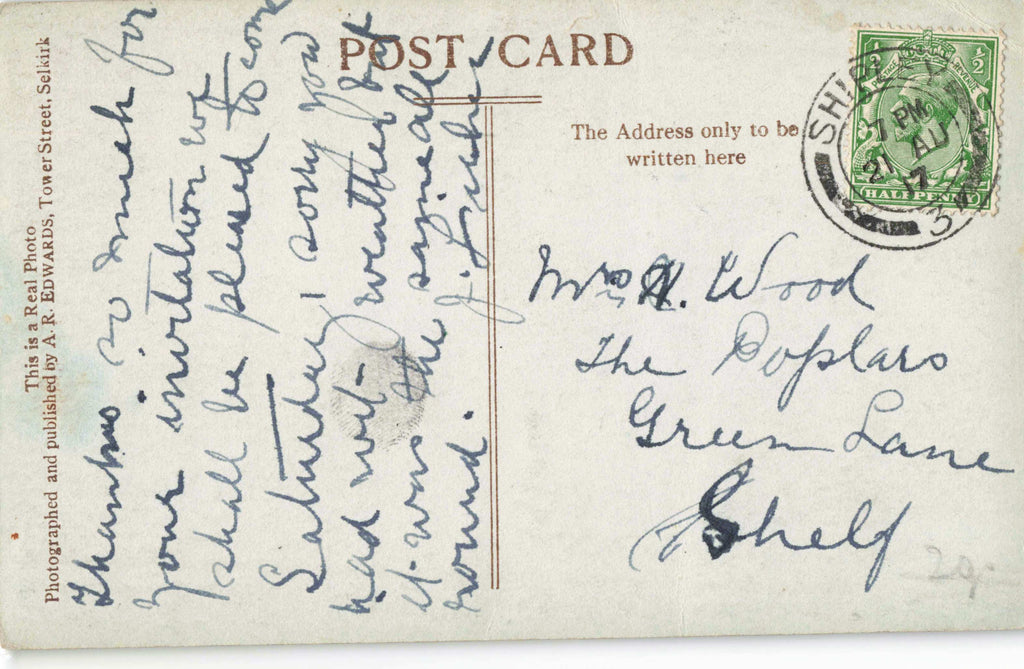 POST CARD
The Address only to be
written here
This is a Real Photo
Photographed and published by A. R. EDWARDS, Tower Street, Selkirk
Thanks so much for
your invitation we
shall be pleased to come
Saturday, I sorry you
had wet weather but
it was the same all
round.
J.
Mrs H. Wood
The Poplars
Green Lane
Shelf
½ ½
HALFPENNY
7 PM
21 AU
17
29